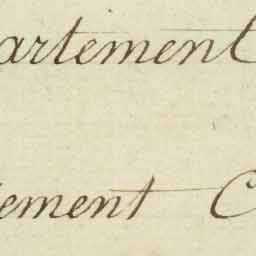 artement
ement C